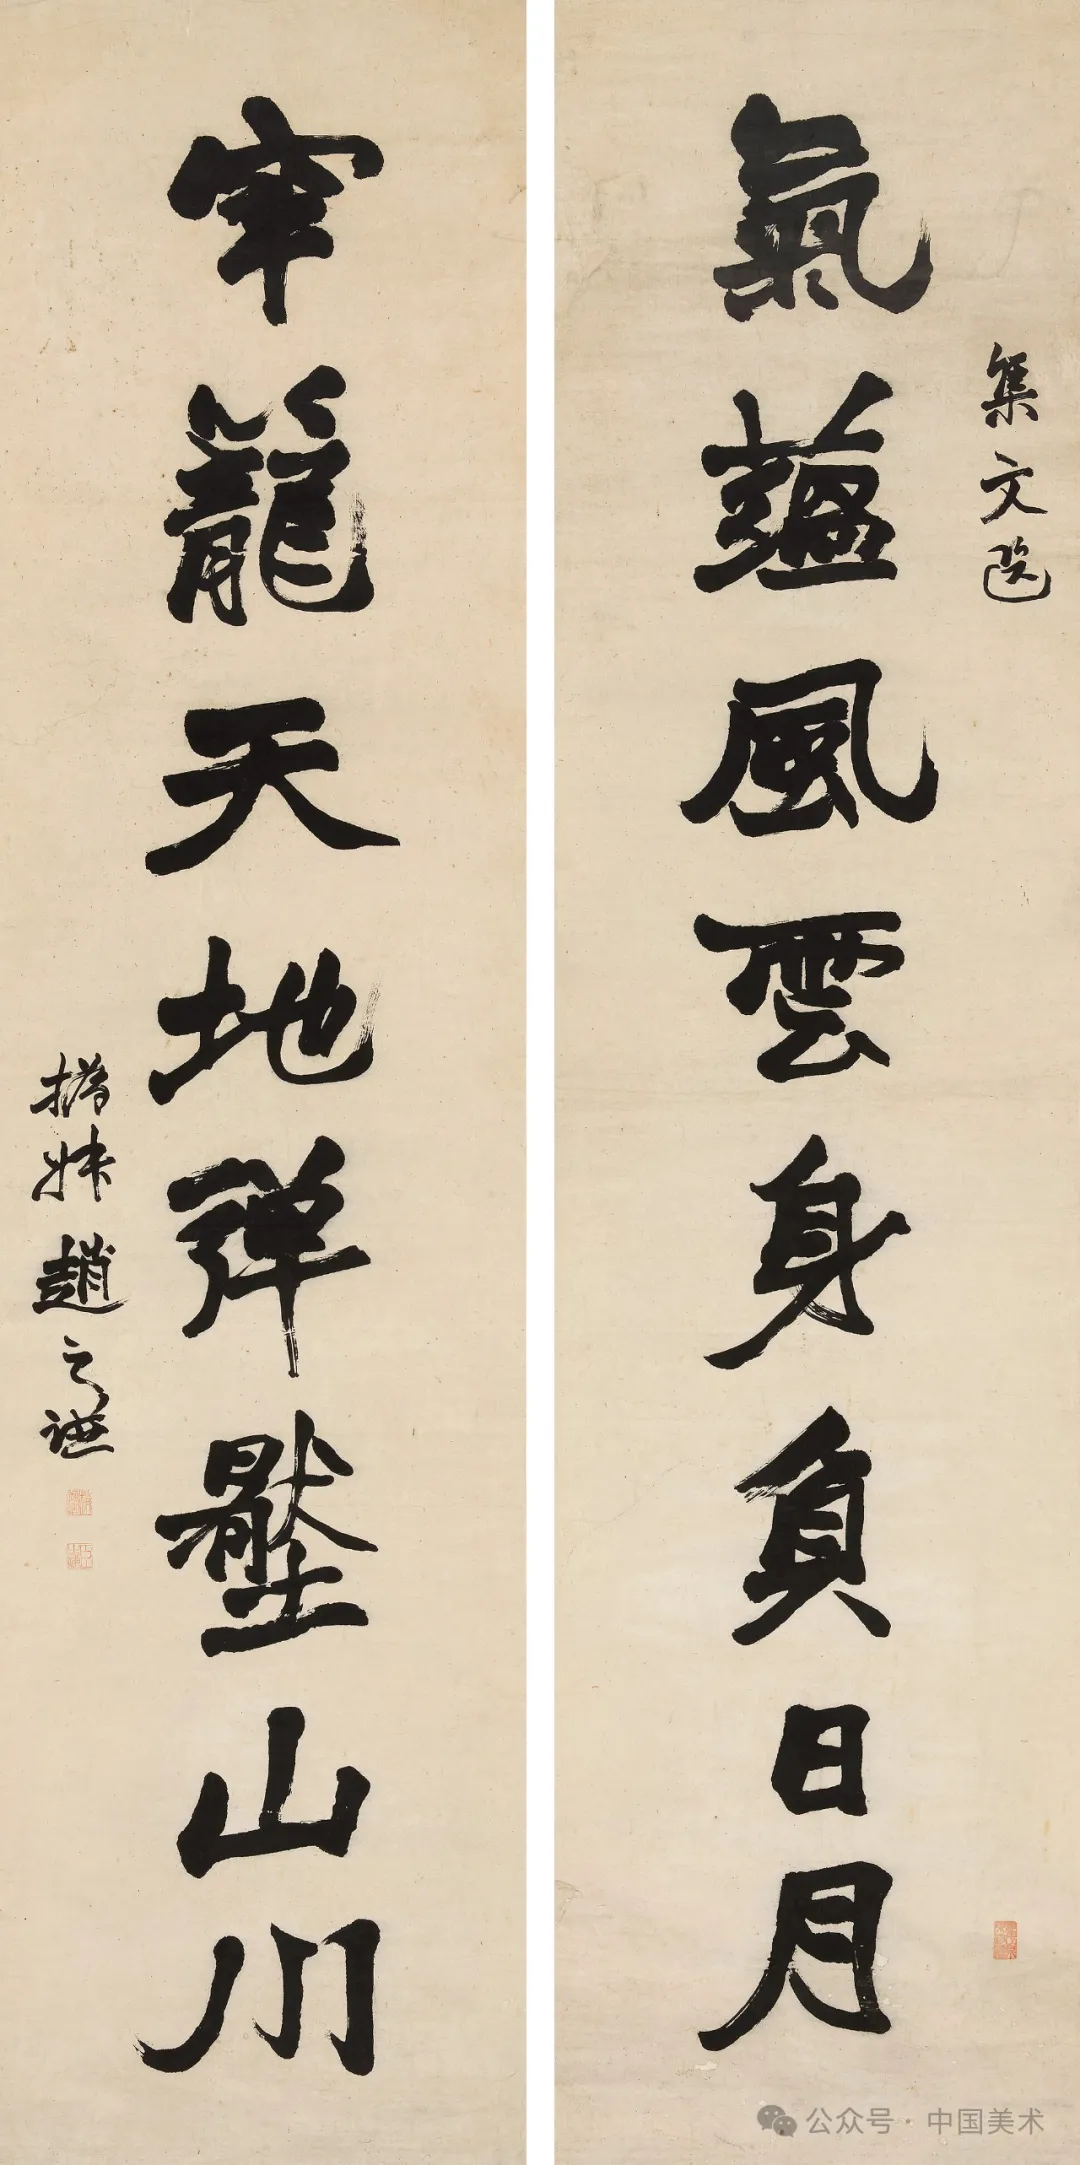 集文選
氣藴風雲身負日月
牢籠天地彈壓山川
撝叔趙之謙
公众号 · 中国美术